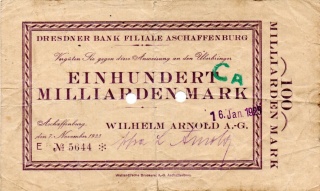 DRESDNER BANK FILIALE ASCHAFFENBURG
Vergüten Sie gegen diese Anweisung an den Überbringer
EINHUNDERT
MILLIARDEN MARK
CA
Aschaffenburg
den 7. November 1923
WILHELM ARNOLD A.-G.
16. Jan. 1925
E № 5644 ✻
100
MILLIARDEN MARK